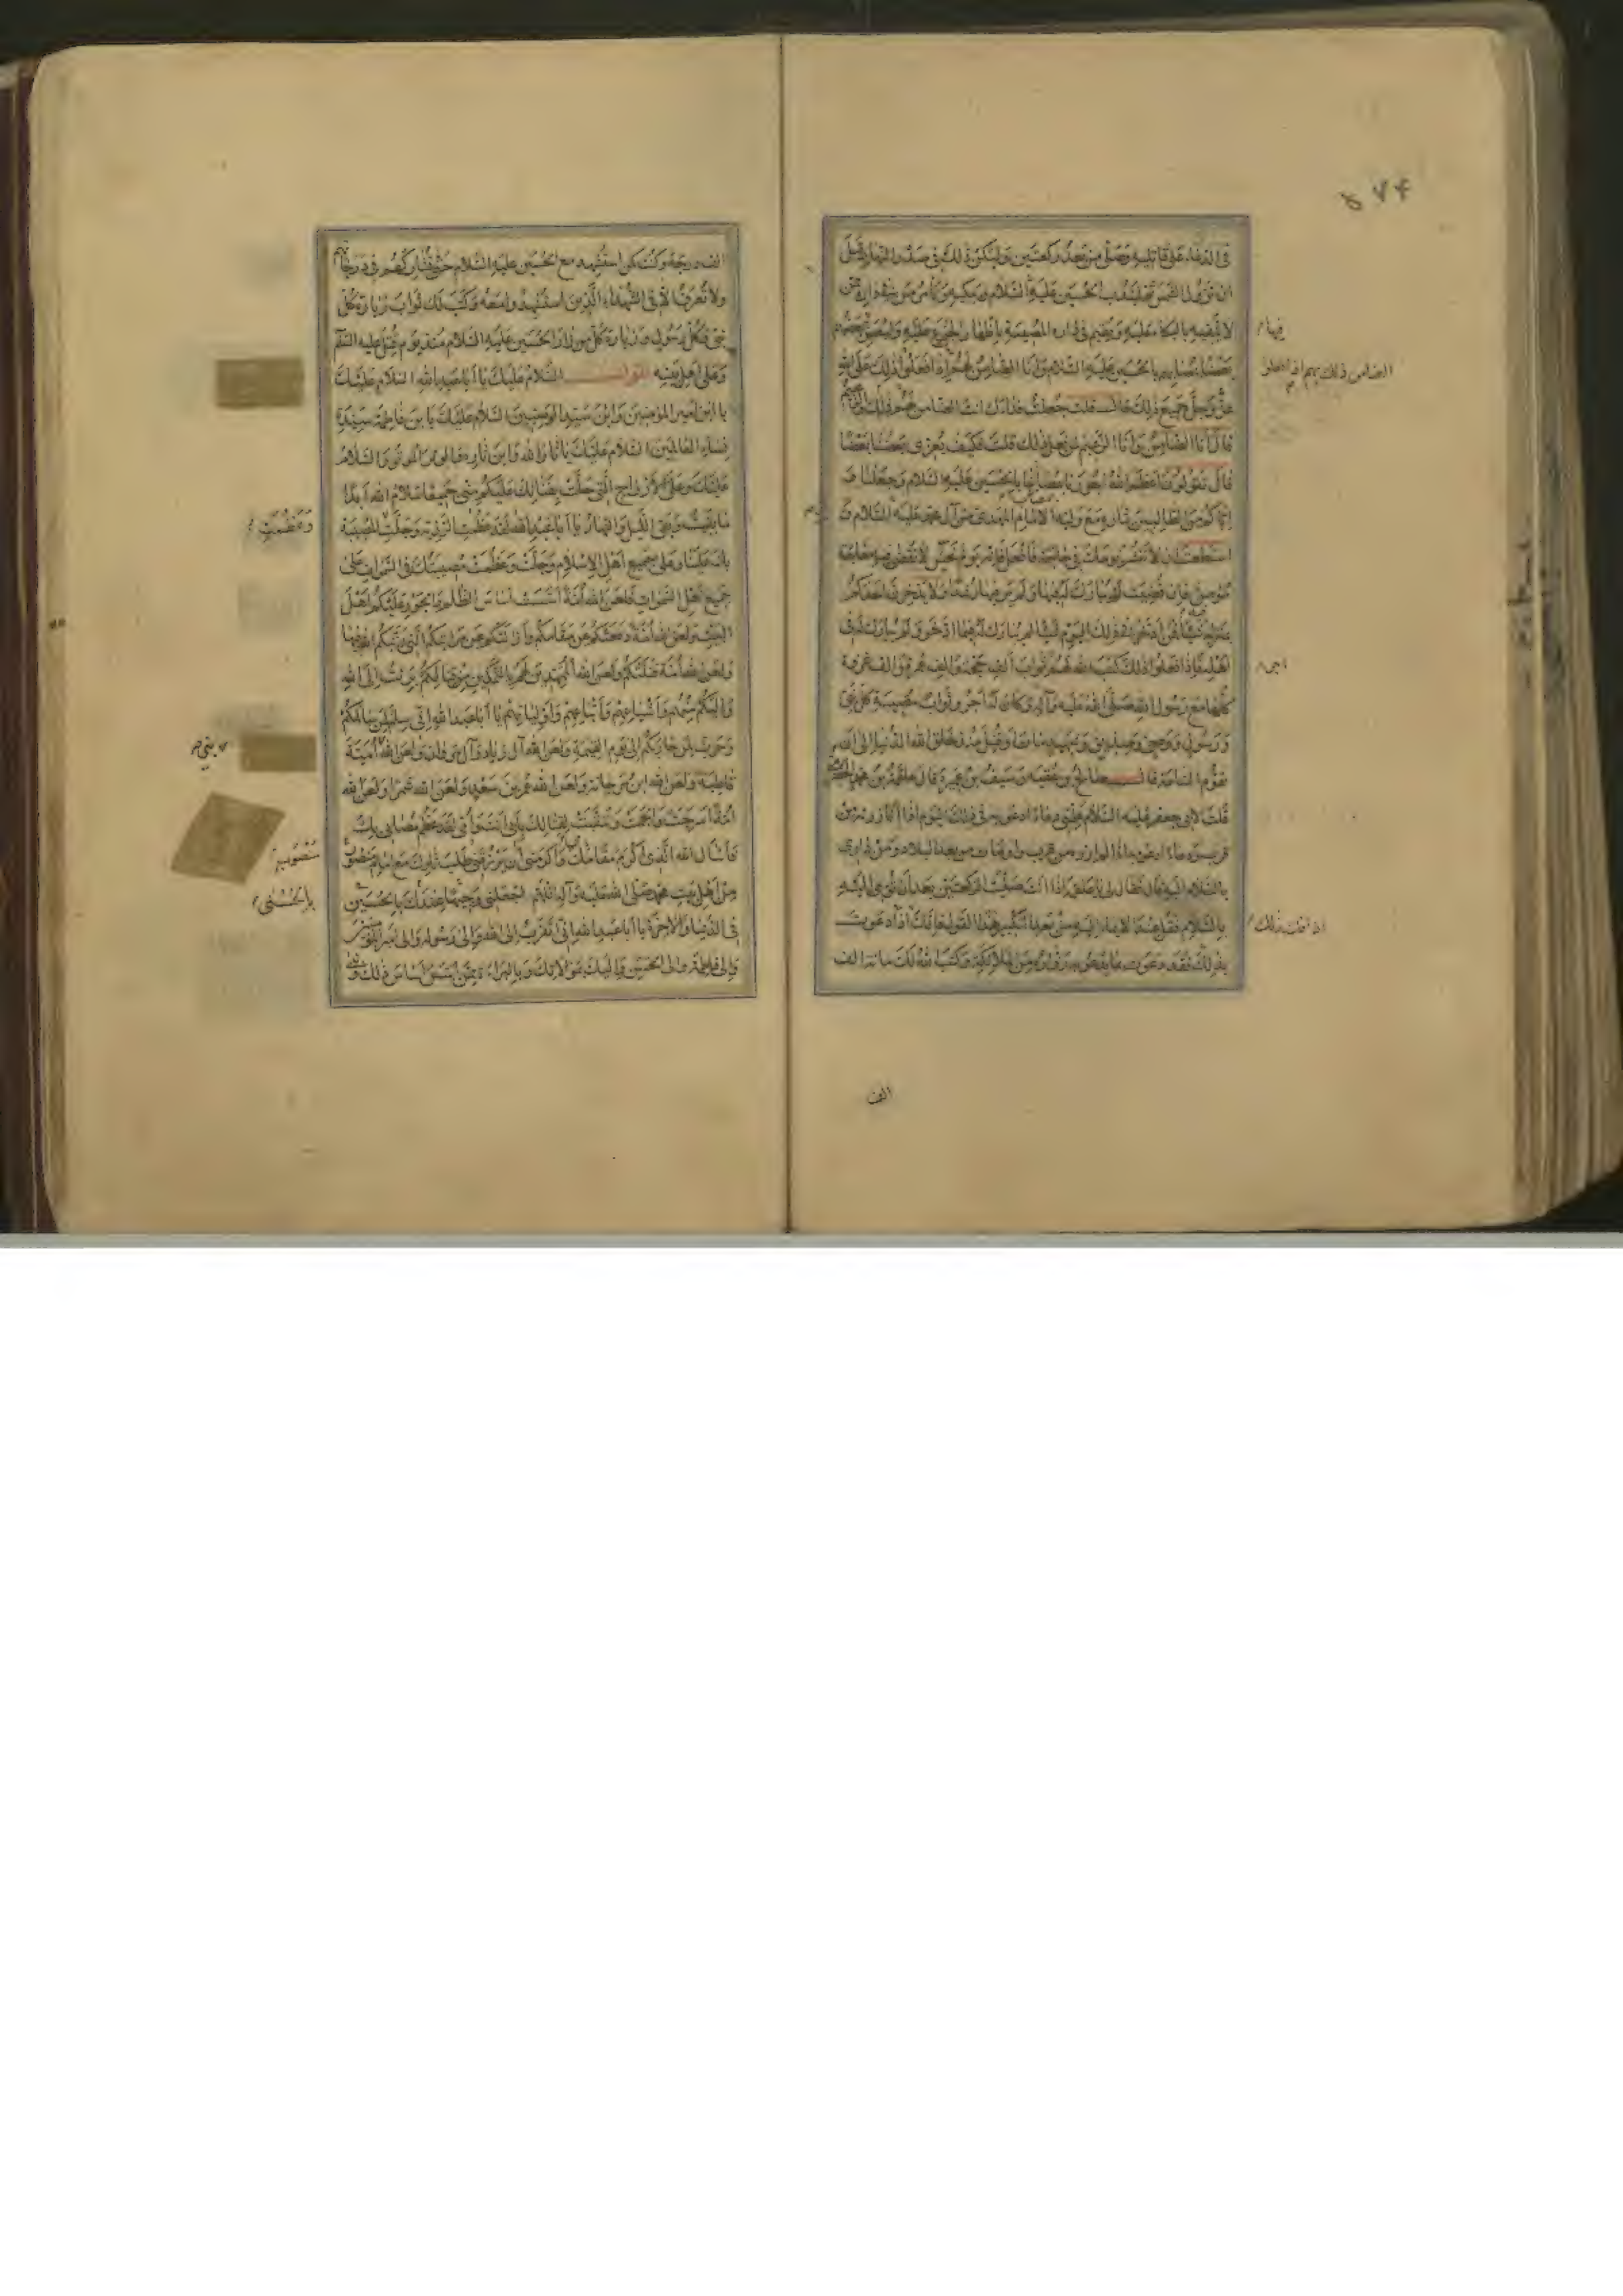 ۵۷۴
فی الدعاء علی قاتلیه وصلّی من بعد رکعتین ولیکن ذلک فی صدر النهار قبل
ان تزول الشمس ثم لیندب الحسین علیه السلام ویبکیه ویأمر من فی داره ممن
لا یتقیه بالبکاء علیه ویقیم فی داره المصیبة باظهار الجزع علیه ولیعزّ
بعضهم بعضا بمصابهم بالحسین علیه السلام وانا الضامن لهم اذا فعلوا ذلک علی الله
عزّ وجلّ جمیع ذلک قلت جعلت فداک انت الضامن ذلک لهم
قال انا الضامن وانا الزعیم لمن فعل ذلک قلت فکیف یعزی بعضنا بعضا
قال تقولون اعظم الله اجورنا بمصابنا بالحسین علیه السلام وجعلنا و
ایاکم من الطالبین بثاره مع ولیه الامام المهدی من آل محمد علیه السلام و
استطعت ان لا تنتشر یومک فی حاجة فافعل فانه یوم نحس لا تقضی فیه حاجة
مؤمن فان قضیت لم یبارک له فیها ولم یر فیها رشدا ولا یدخرن احدکم
لمنزله شیئا فمن ادخر فی ذلک الیوم شیئا لم یبارک له فیما ادخر ولم یبارک له فی
اهله فاذا فعلوا ذلک کتب الله لهم ثواب الف حجة والف عمرة والف غزوة
کلها مع رسول الله صلّی الله علیه وآله وکان له اجر وثواب مصیبة کل نبی
ورسول ووصی وصدیق وشهید مات او قتل منذ خلق الله الدنیا الی ان
تقوم الساعة قال صالح بن عقبة وسیف بن عمیرة قال علقمة بن محمد الحضرمی
قلت لابی جعفر علیه السلام علمنی دعاء ادعو به فی ذلک الیوم اذا انا زرته من
قرب ودعاء ادعو به اذا لم ازره من قرب واومأت من بعد البلاد ومن داری
بالسلام الیه قال فقال لی یا علقمة اذا انت صلیت الرکعتین بعد ان تومی الیه
بالسلام فقل عند الایماء الیه من بعد التکبیر هذا القول فانک اذا دعوت
بذلک فقد دعوت بما یدعو به زواره من الملائکة وکتب الله لک مائة الف
فیها
الضامن ذلک لهم اذا فعلوا
اجر
اذا قلت ذلک
الف
الف درجة وکنت کمن استشهد مع الحسین علیه السلام حتی تشارکهم فی درجاتهم
ولا تعرف الا فی الشهداء الذین استشهدوا معه وکتب لک ثواب زیارة کل
نبی وکل رسول وزیارة کل من زار الحسین علیه السلام منذ یوم قتل علیه السلم
وعلی اهل بیته السلام علیک یا ابا عبد الله السلام علیک
یا ابن امیر المؤمنین وابن سید الوصیین السلام علیک یا بن فاطمة سیدة
نساء العالمین السلام علیک یا ثار الله وابن ثاره والوتر الموتور السلام
علیک وعلی الارواح التی حلّت بفنائک علیکم منی جمیعا سلام الله ابدا
ما بقیت وبقی اللیل والنهار یا ابا عبد الله لقد عظمت الرزیة وجلّت المصیبة
بک علینا وعلی جمیع اهل الاسلام وجلّت وعظمت مصیبتک فی السموات علی
جمیع اهل السموات فلعن الله امة اسست اساس الظلم والجور علیکم اهل
البیت ولعن الله امة دفعتکم عن مقامکم وازالتکم عن مراتبکم التی رتبکم الله فیها
ولعن الله امة قتلتکم ولعن الله الممهدین لهم بالتمکین من قتالکم برئت الی الله
والیکم منهم واشیاعهم واتباعهم واولیائهم یا ابا عبد الله انی سلم لمن سالمکم
وحرب لمن حاربکم الی یوم القیمة ولعن الله آل زیاد وآل مروان ولعن الله امیة
قاطبة ولعن الله ابن مرجانة ولعن الله عمر بن سعد ولعن الله شمرا ولعن الله
امة اسرجت والجمت وتنقبت لقتالک بابی انت وامی لقد عظم مصابی بک
فاسأل الله الذی اکرم مقامک واکرمنی ان یرزقنی طلب ثارک مع امام منصور
من اهل بیت محمد صلّی الله علیه وآله اللهم اجعلنی وجیها عندک بالحسین
فی الدنیا والاخرة یا ابا عبد الله انی اتقرب الی الله والی رسوله والی امیر المؤمنین
والی فاطمة والی الحسن والیک بموالاتک وبالبراءة ممن اسس اساس ذلک
وعظمت
بنی